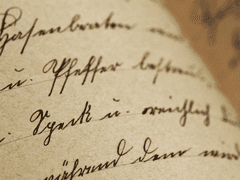 Hasenbraten
u. Pfeffer bestreut
Speck u. reichlich
während dem